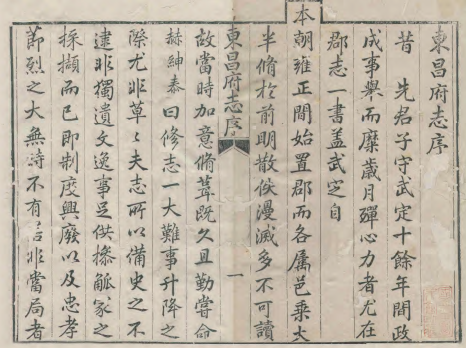 東昌府志序
昔　先君子守武定十餘年間政
成事舉而糜歲月殫心力者尤在
郡志一書盖武定自
本朝雍正間始置郡而各屬邑乘太
半脩於前明散佚漫滅多不可讀
東昌府志序　一
故當時加意脩葺既久且勤嘗命
赫紳泰曰修志一大難事升降之
際尤非草〻夫志所以備史之不
逮非獨遺文逸事足供摻觚家之
採擷而已即制度興廢以及忠孝
節烈之大無時不有苟非當局者